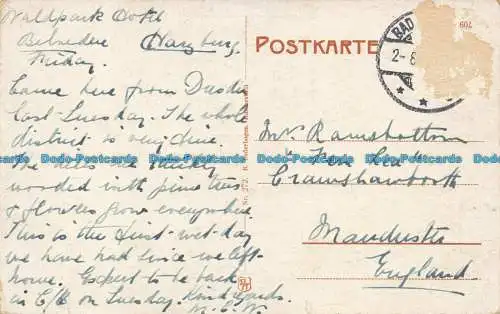 Waldpark Hotel
Belvedere Harzburg
Friday.
Came here from Dresden
last Tuesday. The whole
district is very fine.
The hills are thickly
wooded with pine trees
& flowers grow everywhere.
This is the first wet day
we have had since we left
home. Expect to be back
in C/B on Tuesday. Kind regards.
M. E. W.
POSTKARTE
604
BAD
2-8
Mr Ramsbottom
Crawshawbooth
Manchester
England
Dodo-Postcards Dodo-Postcards Dodo-Postcards Dodo-Postcards Dodo-Postcards
Dodo-Postcards Dodo-Postcards Dodo-Postcards Dodo-Postcards Dodo-Postcards